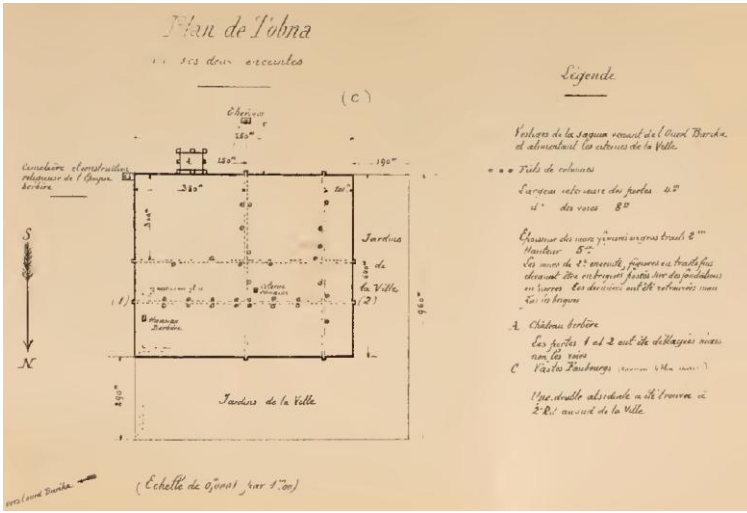 Plan de Tobna
ses deux enceintes
(C)
Citernes
250ᵐ
A
150ᵐ
190ᵐ
Cimetière et construction
religieuse de l'Epoque
berbère
380ᵐ
200ᵐ
300ᵐ
S
N
Jardins
de
la Ville
960ᵐ
gymnase
citerne
romaine
(1)
(2)
Hammam
Berbère
290ᵐ
Jardins de la Ville
vers l'oued Barika
(Echelle de 0,ᵐ001 par 1ᵐ00)
Légende
Vestiges de la saguia venant de l'Oued Barika
et alimentant les citernes de la Ville
Futs de colonnes
Largeur intérieure des portes 4ᵐ
dº des voies 8ᵐ
Epaisseur des murs figurés en gros traits 2ᵐ
Hauteur 5ᵐ
Les murs de 2ᵉ enceinte, figurés en traits fins
devaient être en briques posées sur des fondations
en pierres. Les dernières ont été retrouvées mais
pas les briques
A Château berbère
Les portes 1 et 2 ont été déblayées mais
non les voies
C Vastes Faubourgs
Une double absidiale a été trouvée à
au sud de la Ville